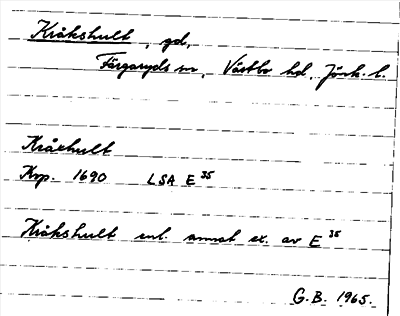 Kråkshult, gd,
Färgaryds sn, Västbo hd, Jönk. l.
Kråxhult
Krp. 1690 LSA E 35
Kråkshult enl. annat ex. av E 35
G.B. 1965.